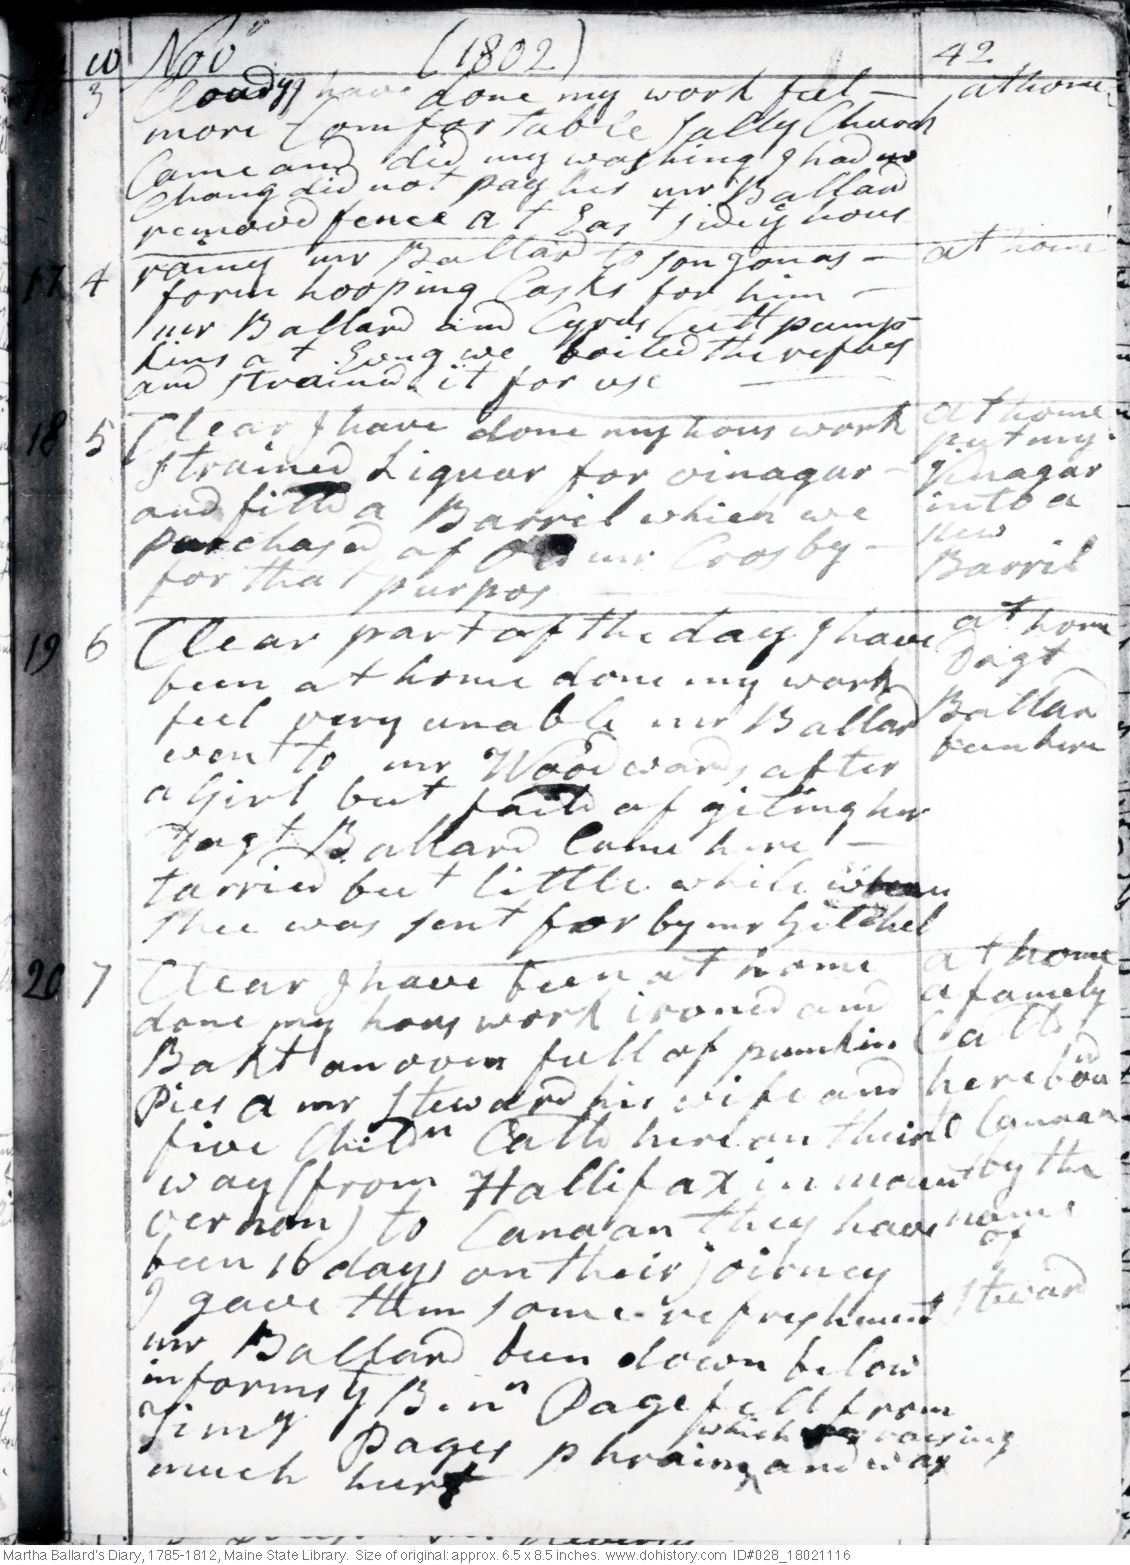 w Novr (1802) 42
3 Cloudy I have done my work feel — at home
more Comfortable Sally Church
Came and did my washing I had no
Chang did not pay her mr Ballard
removd fence at East side ye hous
17 4 rainy mr Ballard to son Jonas — at home
form hooping Casks for him —
mr Ballard and Cyrus Cutt pump
kins at we boiled the refues
and strained it for use
18 5 Clear I have done my hous work at home
Strained Liquar for vinagar — put my
and filld a Barril which we vinagar
purchased of Old mr Crosby — into a
for that purpos new
Barril
19 6 Clear part of the day I have at home
been at home done my work Dagt
feel very unable mr Ballard Ballard
went to mr Woodwards after been here
a Girl but faild of giting her
Dagt Ballard Came here —
tarried but little while when
shee was sent for by mr Gitchel
20 7 Clear I have been at home at home
done my hous work ironed and a famely
Bakt an oven full of pumkin Calld
Pies a mr Steward his wife and here bound
five Childn Calld here on their to Canaan
way (from Hallifax in mount by the
vernon) to Canaan they have name
been 16 days on their joirney of
I gave them some refreshment Steward
mr Ballard been down below
informs yt Binn Page fell from
Simn Pages phraim which raising
much hurt and was
Martha Ballard's Diary, 1785-1812, Maine State Library. Size of original: approx. 6.5 x 8.5 inches. www.dohistory.com ID#028_18021116